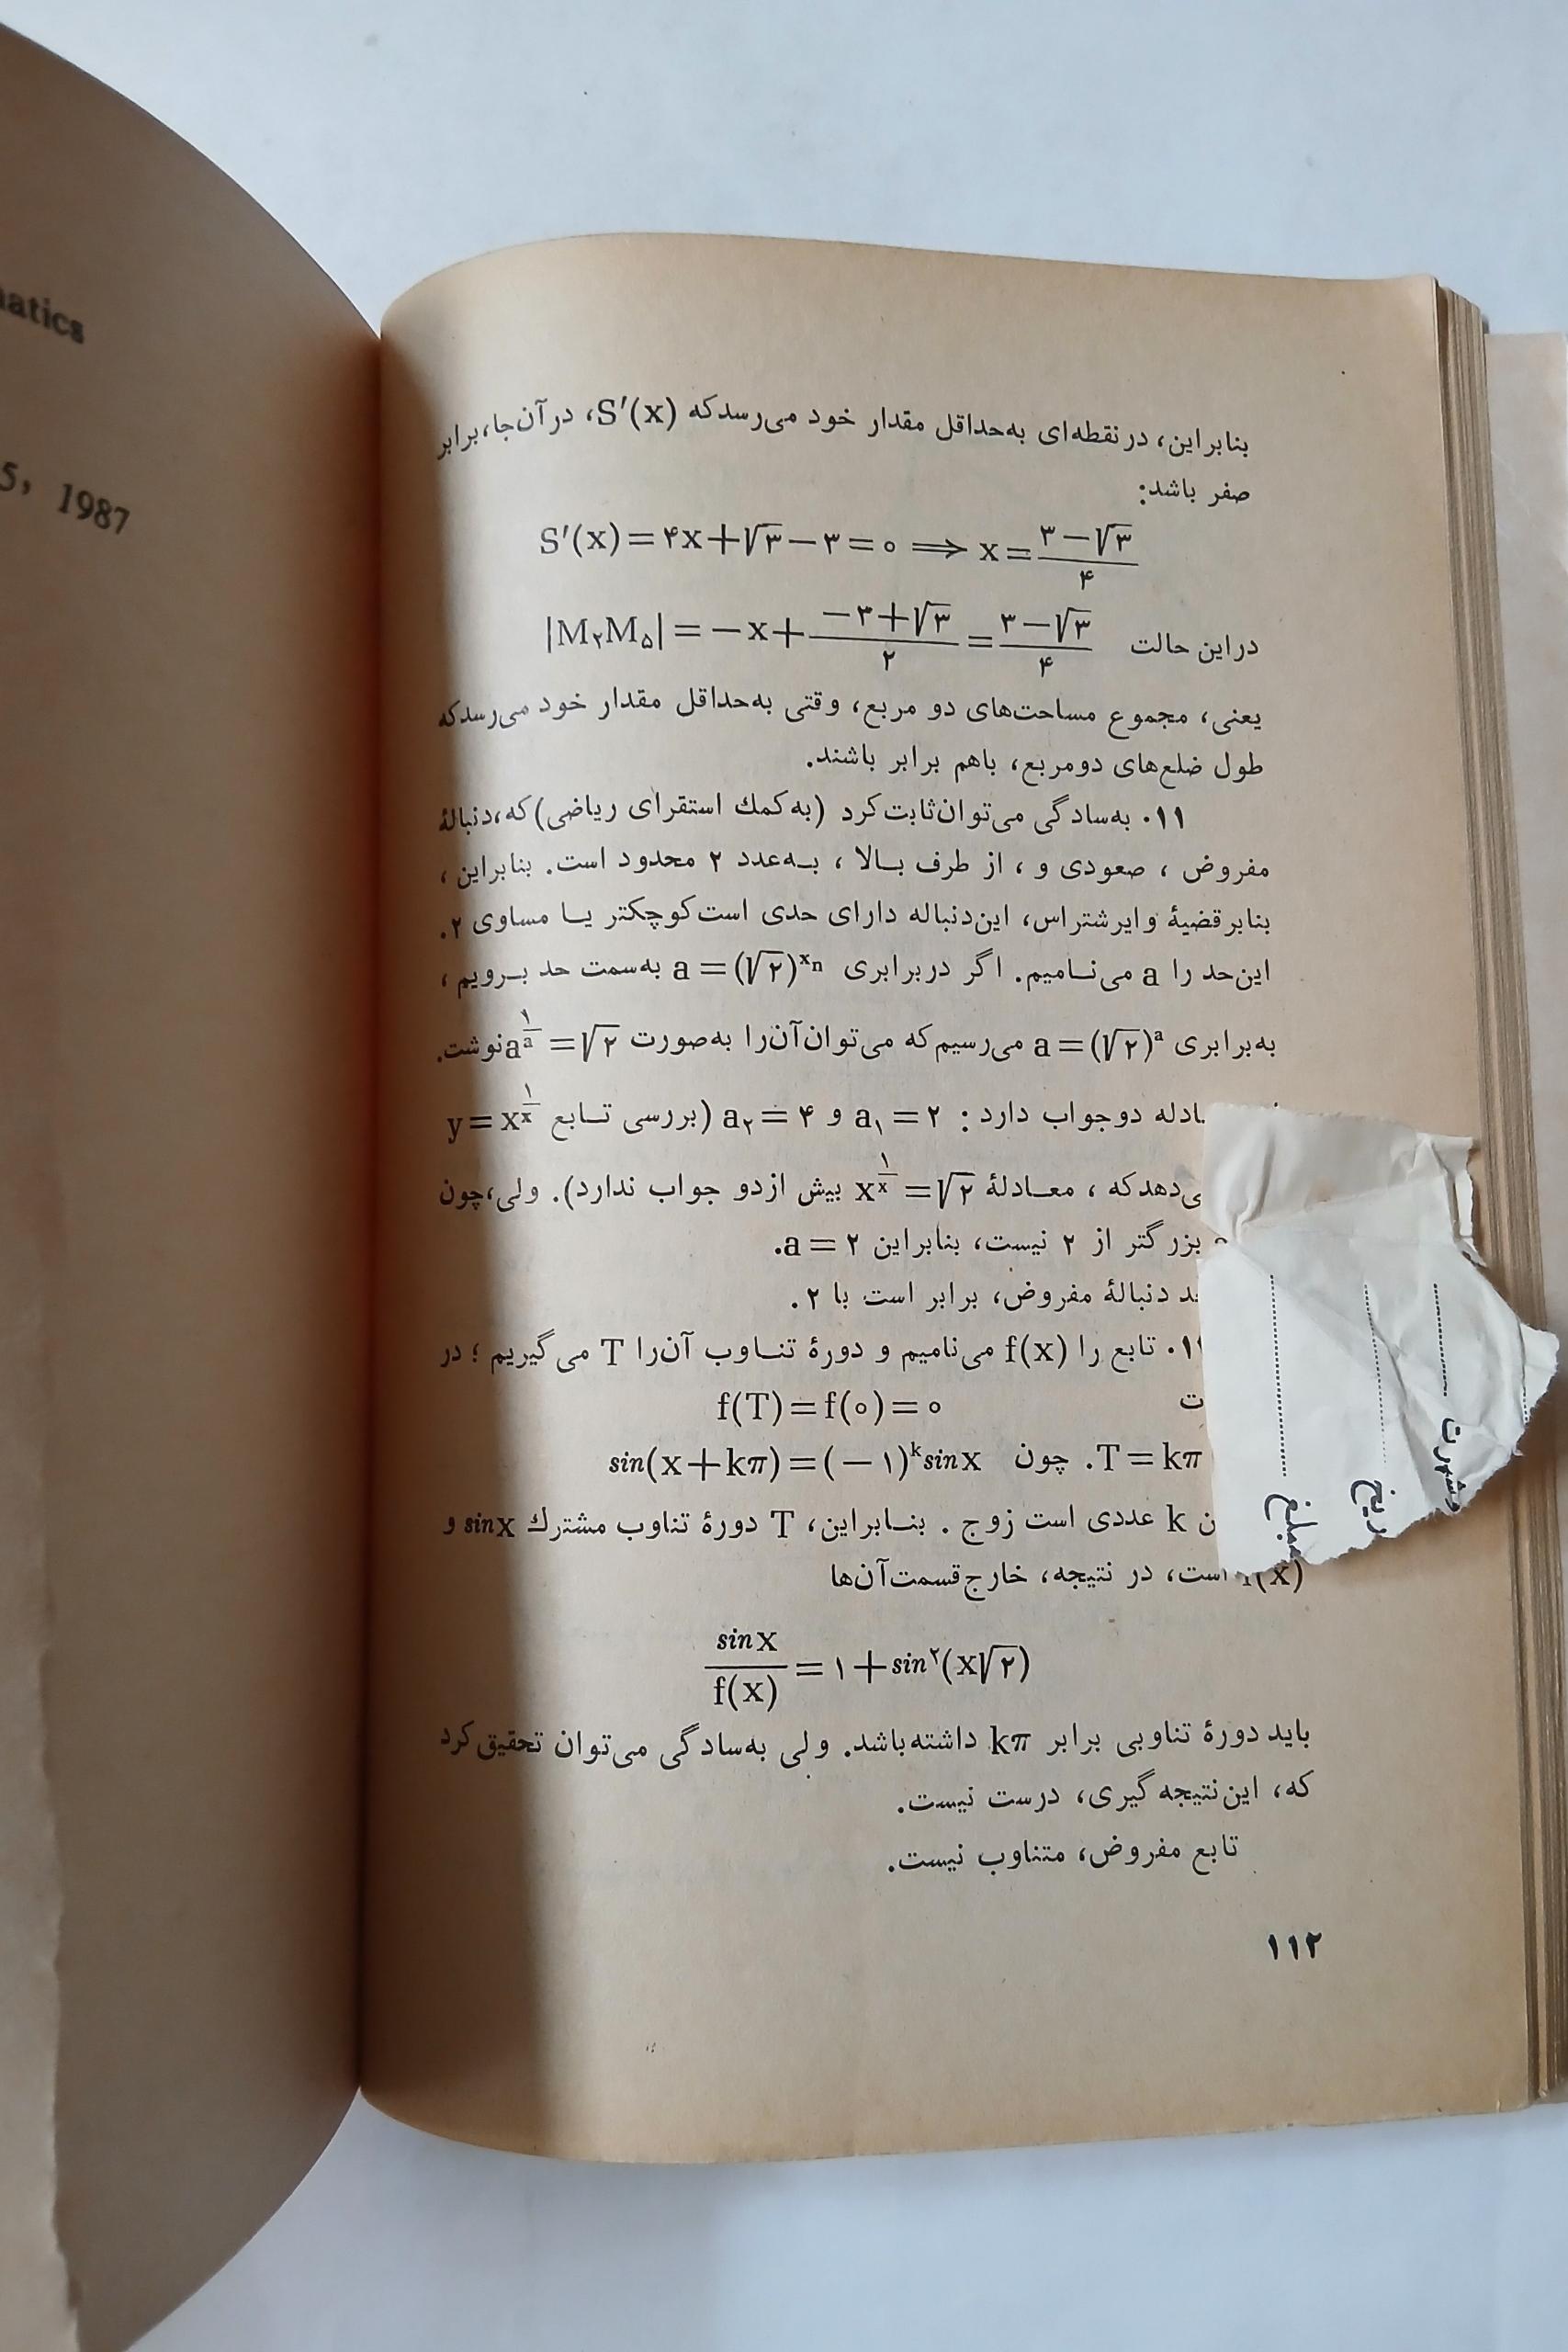 atics
5, 1987
بنابراین، در نقطه‌ای به‌حداقل مقدار خود می‌رسد که S′(x)، در آن‌جا، برابر
صفر باشد:
S′(x)=۴x+√۳−۳=۰ ⟹ x=(۳−√۳)/۴
در این حالت |M₂M₅|=−x+(−۳+√۳)/۲=(۳−√۳)/۴
یعنی، مجموع مساحت‌های دو مربع، وقتی به‌حداقل مقدار خود می‌رسد که
طول ضلع‌های دو مربع، باهم برابر باشند.
۱۱. به‌سادگی می‌توان ثابت کرد (به‌کمك استقرای ریاضی) که، دنبالهٔ
مفروض، صعودی و، از طرف بالا، به‌عدد ۲ محدود است. بنابراین،
بنابر قضیهٔ وایرشتراس، این دنباله دارای حدی است کوچکتر یا مساوی ۲.
این حد را a می‌نامیم. اگر در برابری a=(√۲)^xₙ به‌سمت حد برویم،
به‌برابری a=(√۲)^a می‌رسیم که می‌توان آن‌را به‌صورت a^(۱/a)=√۲ نوشت.
ادله دو جواب دارد: a₁=۲ و a₂=۴ (بررسی تابع y=x^(۱/x)
ی‌دهد که، معادلهٔ x^(۱/x)=√۲ بیش از دو جواب ندارد). ولی، چون
بزرگتر از ۲ نیست، بنابراین a=۲.
د دنبالهٔ مفروض، برابر است با ۲.
تابع را f(x) می‌نامیم و دورهٔ تناوب آن‌را T می‌گیریم؛ در
ت f(T)=f(۰)=۰
T=kπ. چون sin(x+kπ)=(−۱)^k sinx
ن k عددی است زوج. بنابراین، T دورهٔ تناوب مشترك sinx و
f(x) است، در نتیجه، خارج‌قسمت آن‌ها
sinx/f(x)=۱+sin²(x√۲)
باید دورهٔ تناوبی برابر kπ داشته‌باشد. ولی به‌سادگی می‌توان تحقیق کرد
که، این نتیجه‌گیری، درست نیست.
تابع مفروض، متناوب نیست.
۱۱۲
وشهرت
ریخ
مبلغ